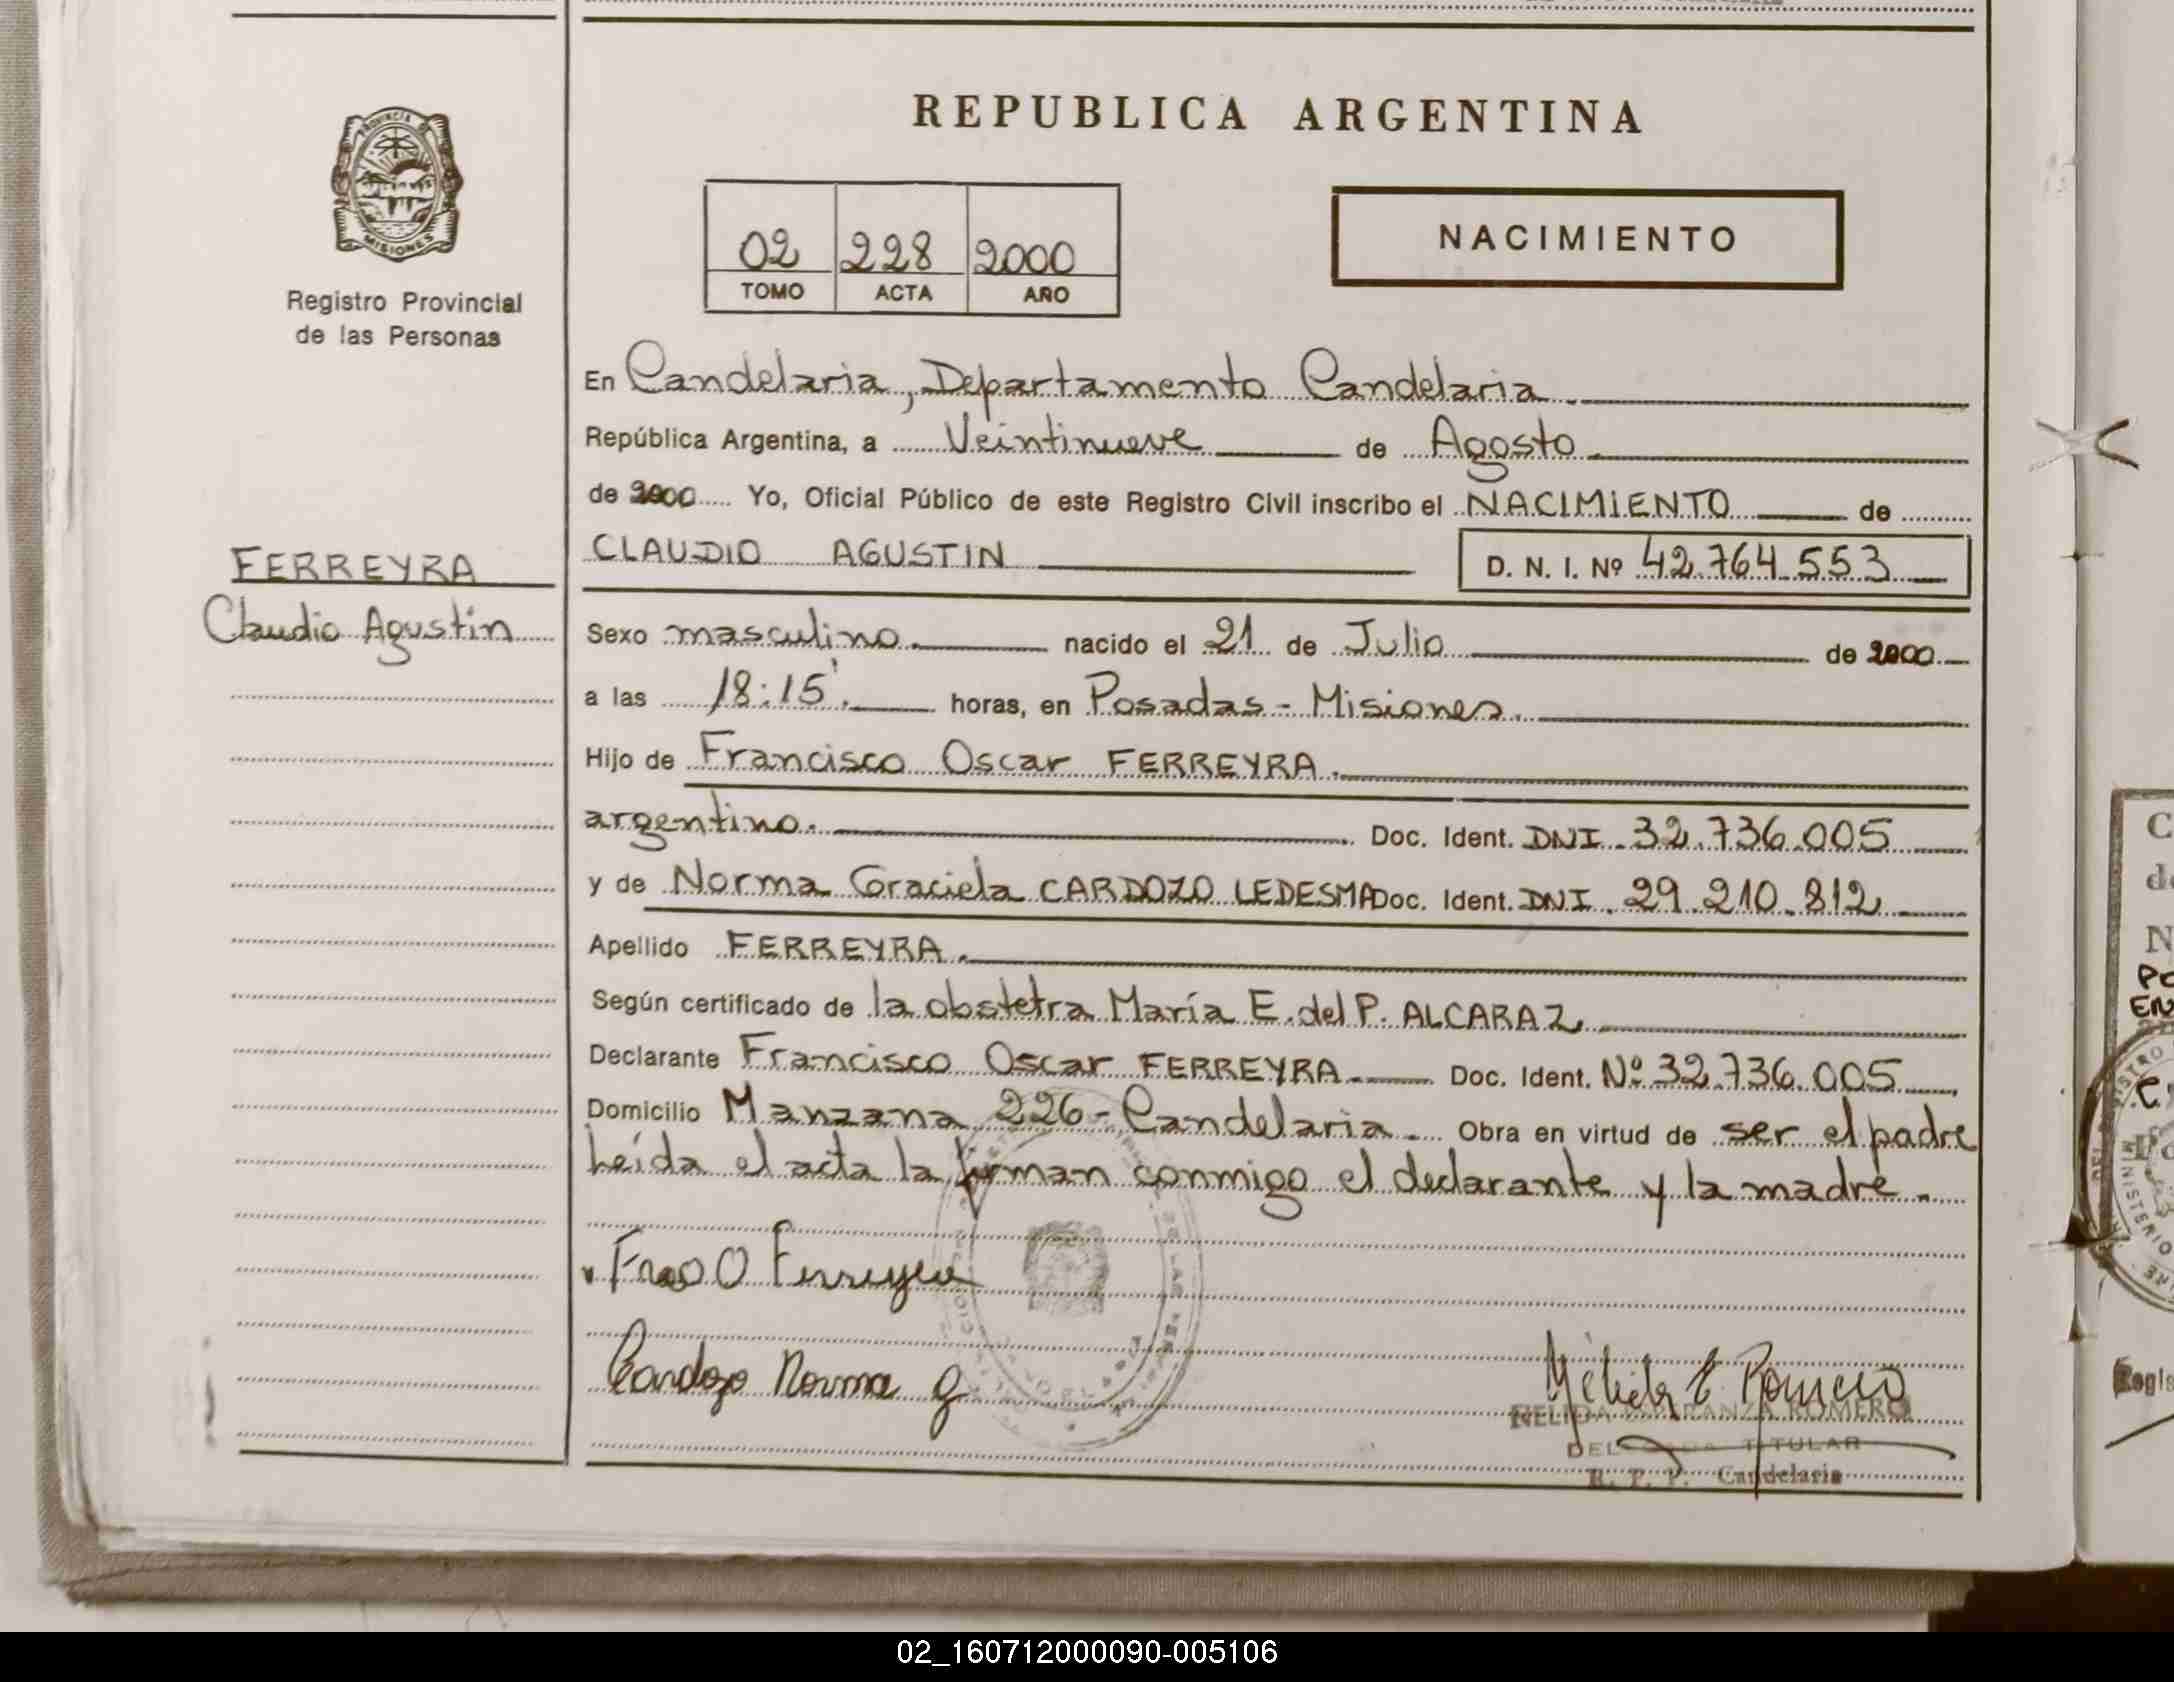 REPUBLICA ARGENTINA
PROVINCIA DE
MISIONES
Registro Provincial
de las Personas
02 228 2000
TOMO ACTA AÑO
NACIMIENTO
En Candelaria, Departamento Candelaria.
República Argentina, a Veintinueve de Agosto.
de 2000 Yo, Oficial Público de este Registro Civil inscribo el NACIMIENTO de
CLAUDIO AGUSTIN
D. N. I. Nº 42.764.553
FERREYRA
Claudio Agustín
Sexo masculino. nacido el 21 de Julio de 2000
a las 18:15'. horas, en Posadas - Misiones.
Hijo de Francisco Oscar FERREYRA.
argentino. Doc. Ident. DNI. 32.736.005
y de Norma Graciela CARDOZO LEDESMA Doc. Ident. DNI. 29.210.812
Apellido FERREYRA.
Según certificado de la obstetra María E. del P. ALCARAZ
Declarante Francisco Oscar FERREYRA. Doc. Ident. Nº 32.736.005
Domicilio Manzana 226 - Candelaria. Obra en virtud de ser el padre
Leída el acta la firman conmigo el declarante y la madre.
Fco O Ferreyra
Cardozo Norma G
Nélida E. Romero
NELIDA ESPERANZA ROMERO
DELEGADA TITULAR
R. P. P. Candelaria
02_160712000090-005106